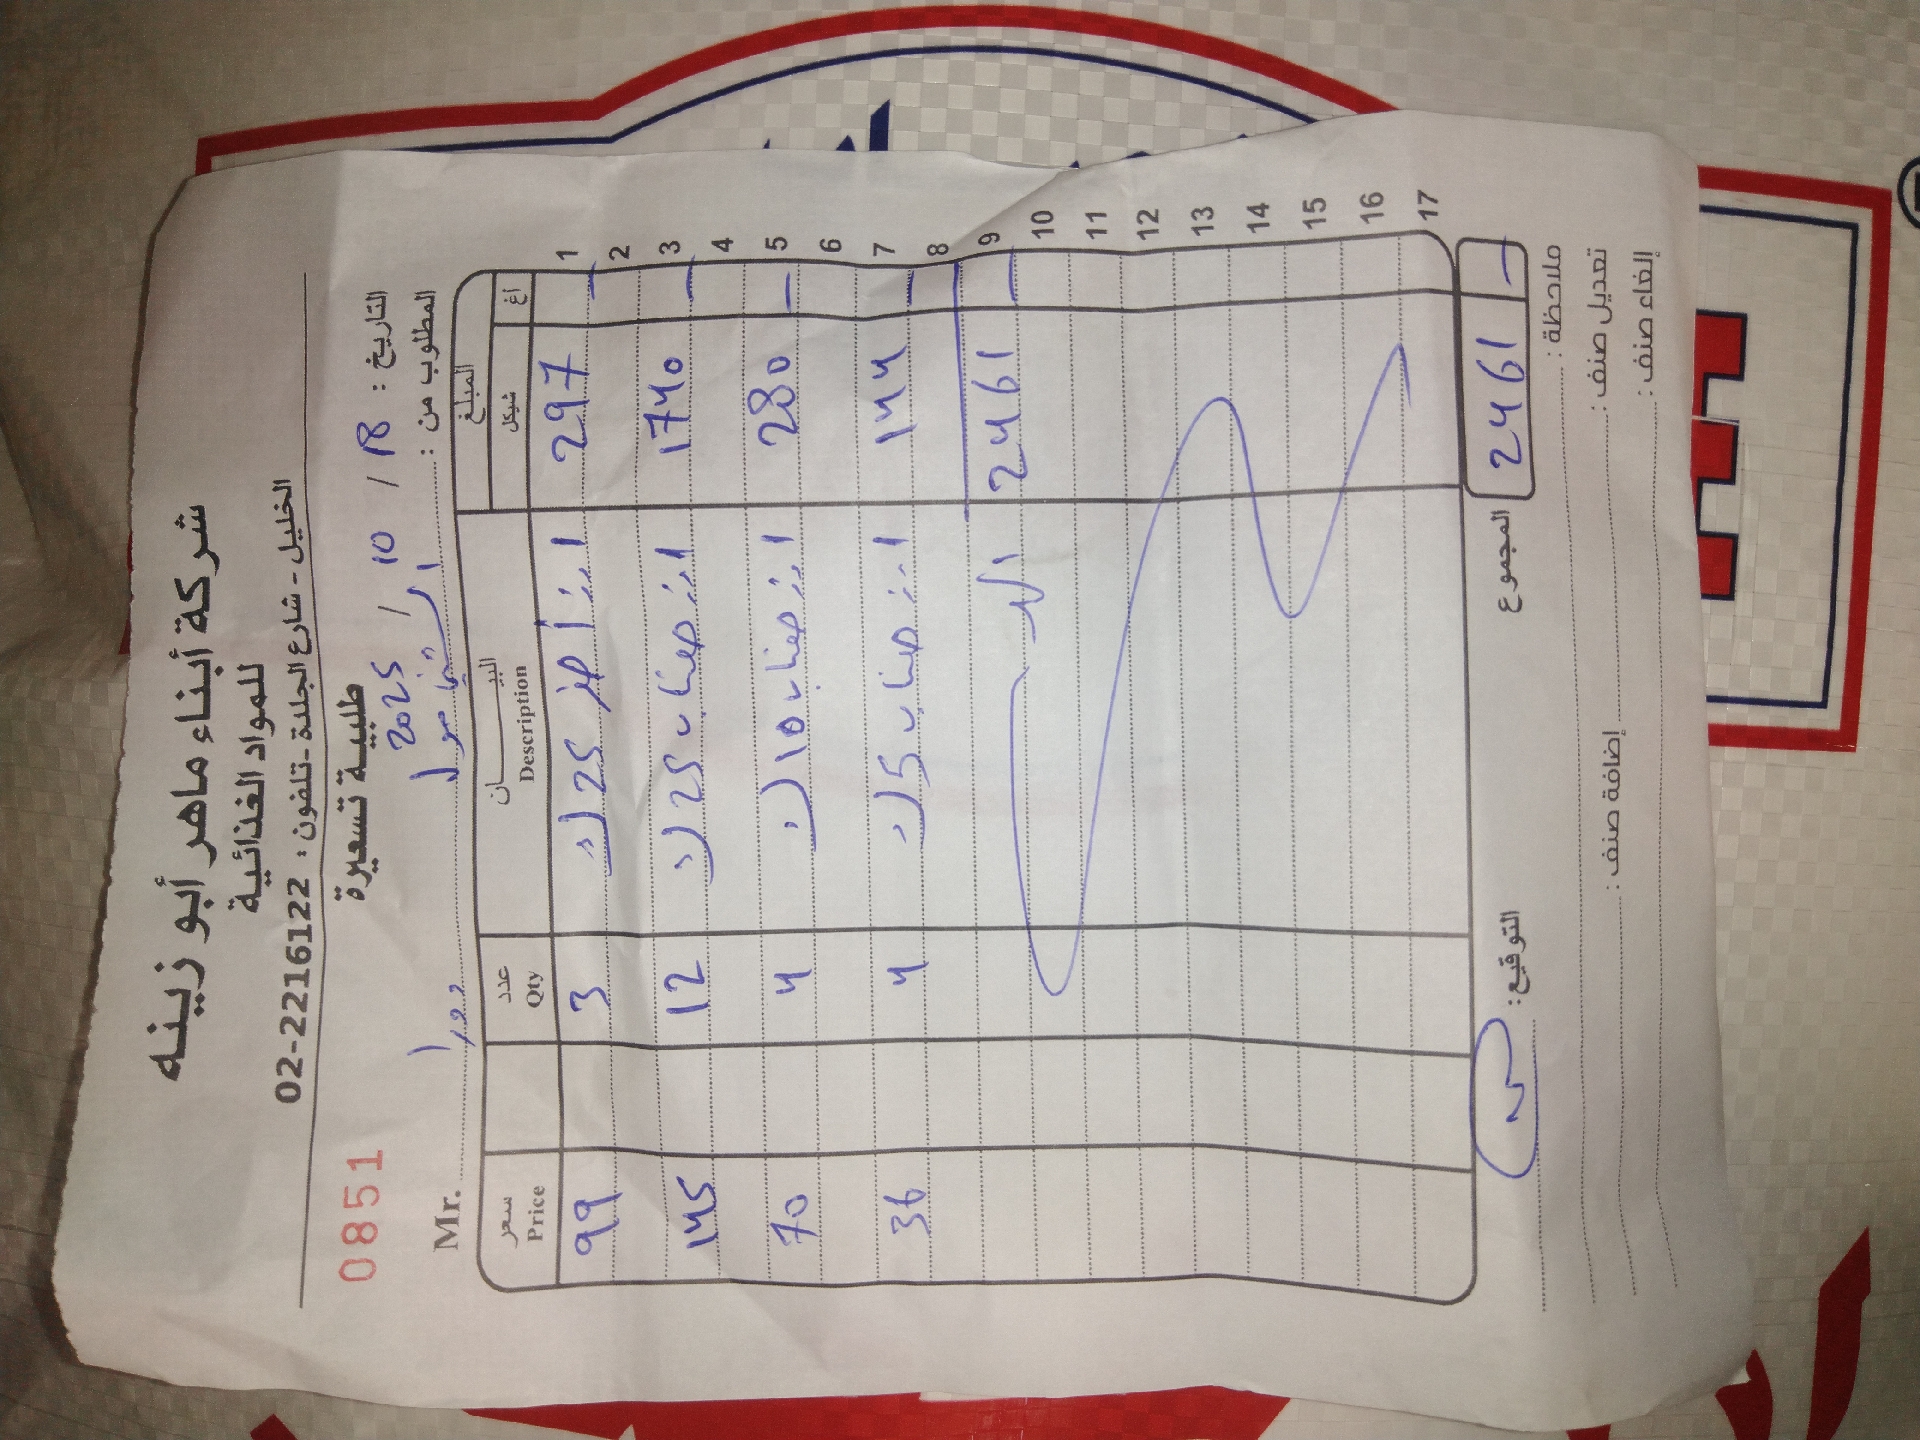 شركة أبناء ماهر أبو زينه
للمواد الغذائية
الخليل - شارع الجلدة - تلفون : 02-2216122
طلبية تسعيرة
0851
التاريخ : 18 / 10 / 2025
المطلوب من :
Mr. دورا
المبلغ البيـــــــان عدد سعر
أغ شيكل Description Qty Price
1 — 297 ارز أخضر 25 ك 3 99
2
3 — 1740 ارز صعناب 25 ك 12 145
4
5 — 280 ارز صعناب 10 ك 4 70
6
7 — 144 ارز صعناب 5 ك 4 36
8
9 — 2461
10
11
12
13
14
15
16
17
— 2461 المجموع التوقيع :
ملاحظة :
تعديل صنف : إضافة صنف :
إلغاء صنف :